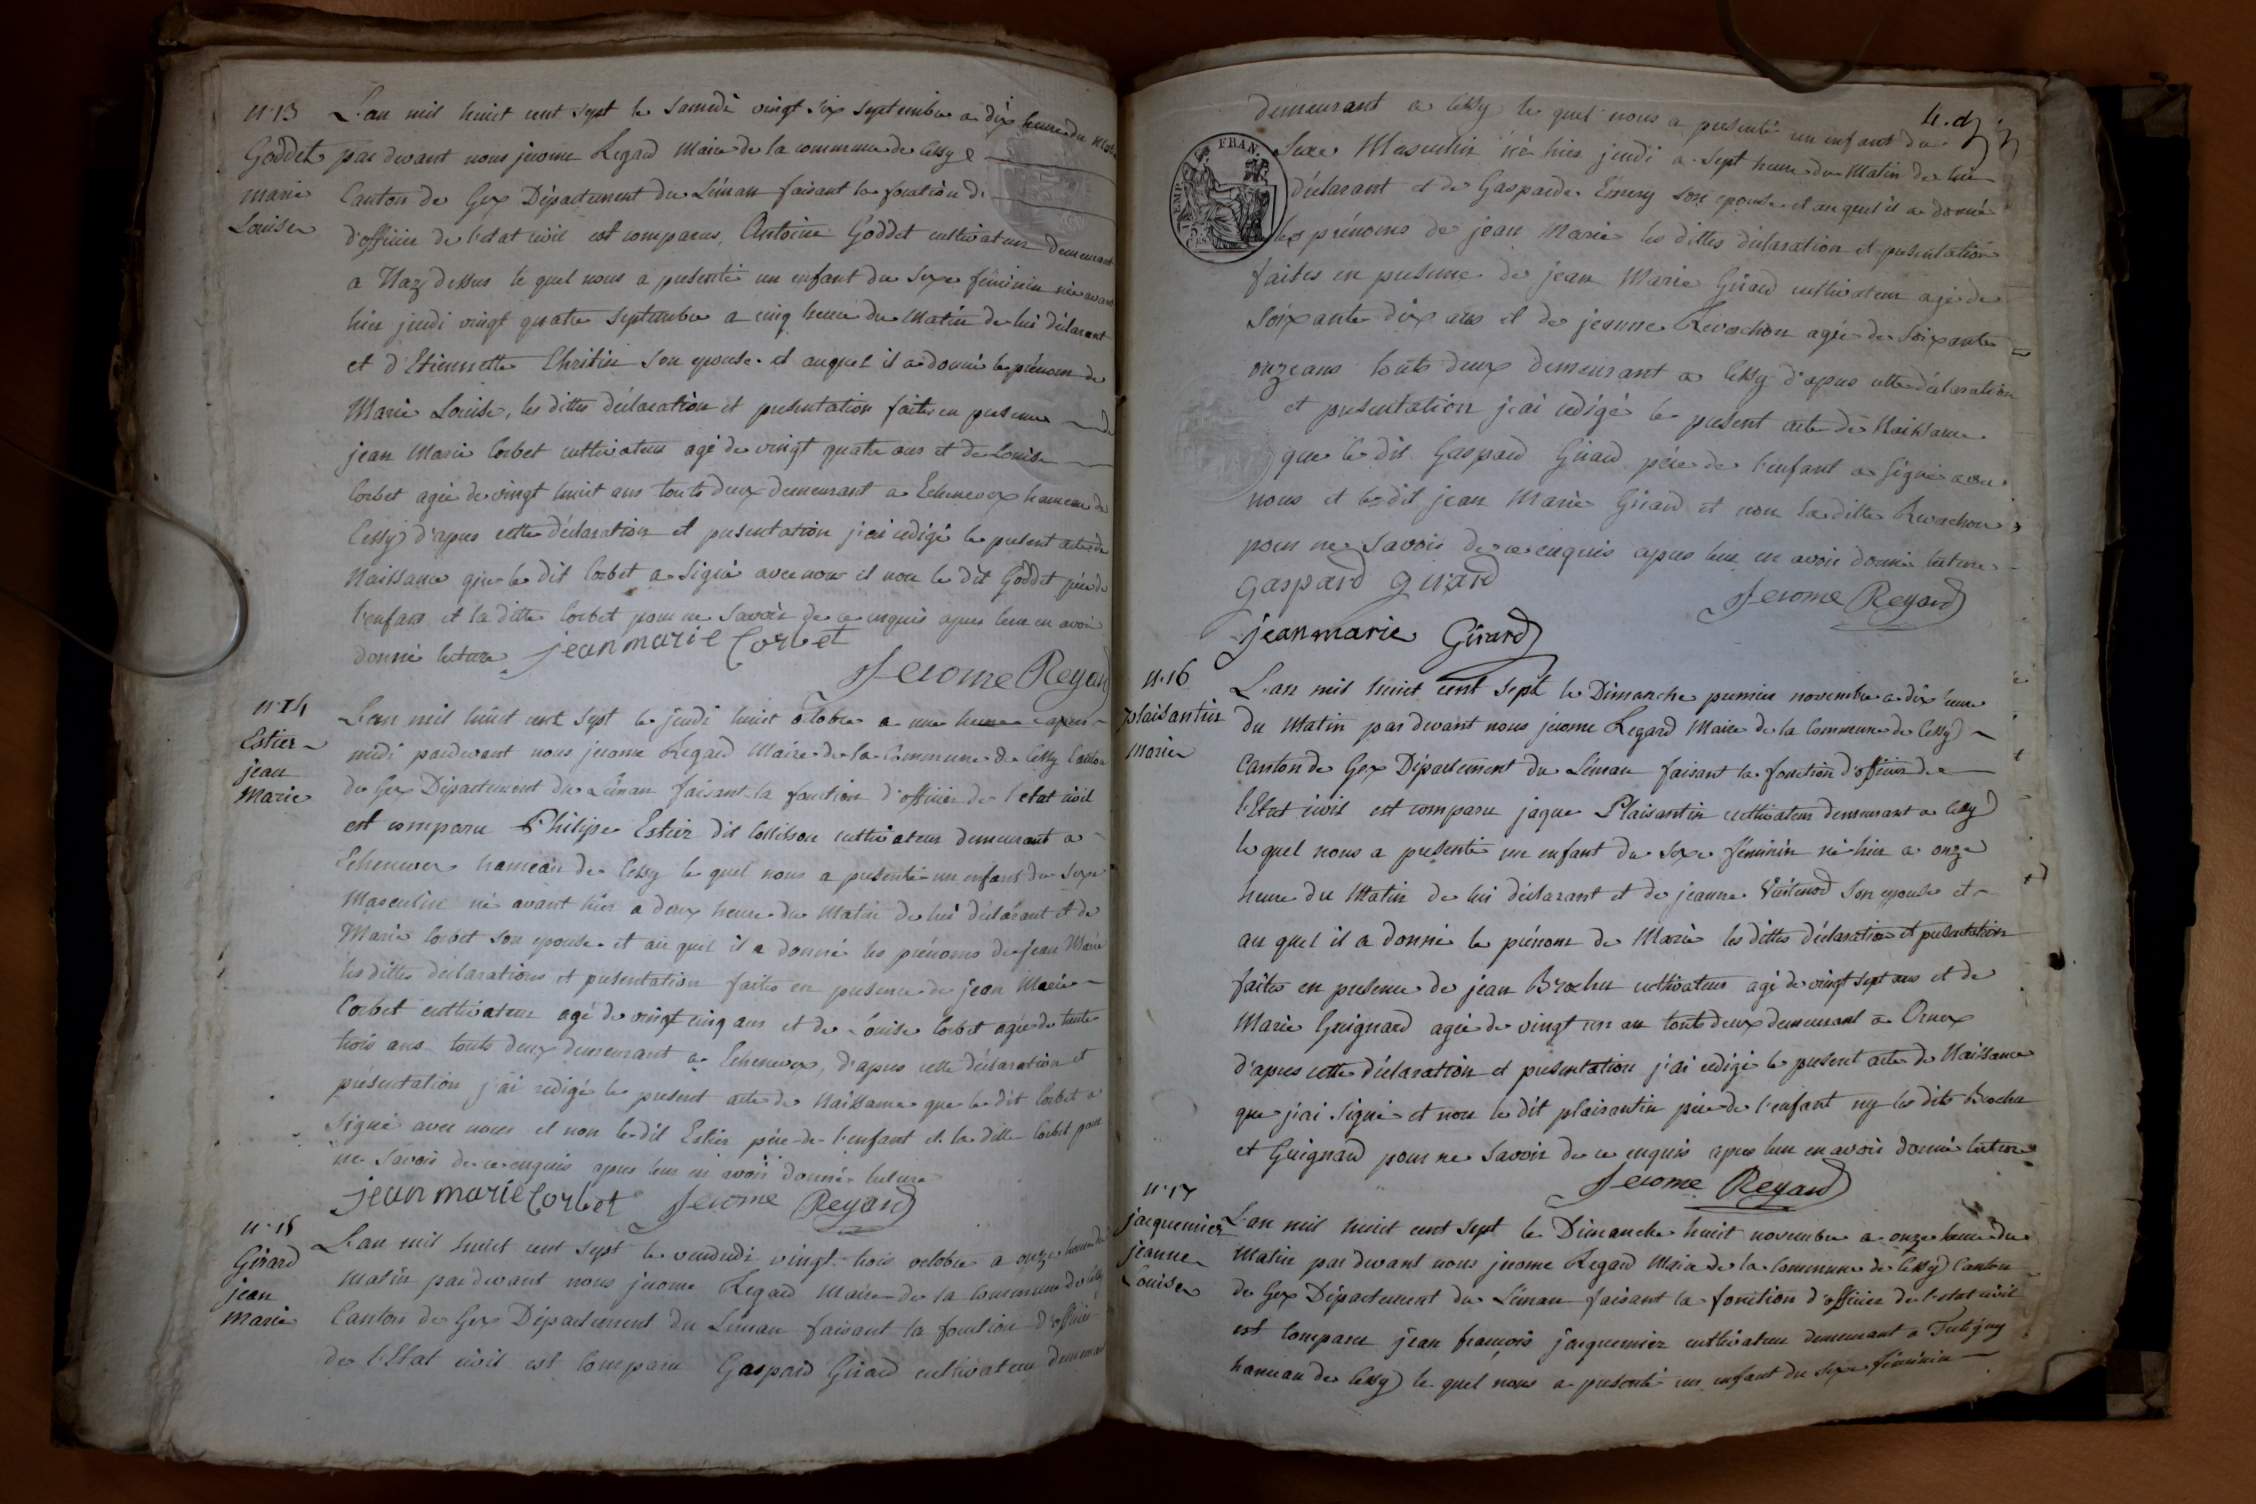 n° 13
Goddet
marie
Louise
L'an mil huit cent sept le samedi vingt six septembre a dix heure du matin
par devant nous jerome Regard Maire de la commune de Cessy
Canton de Gex Département du Léman faisant la fonction de
d'officier de l'etat civil est comparus, Antoine Goddet cultivateur demeurant
a Naz dessus le quel nous a presenté un enfant du sexe féminin née avant
hier jeudi vingt quatre septembre a cinq heure du Matin de lui déclarant
et d'Etiennette Christin son epouse. et auquel il a donné le prénom de
Marie Louise, les dittes déclaration et presentation faites en presence de
jean Marie Corbet cultivateur agé de vingt quatre ans et de Louise
Corbet agée de vingt huit ans touts deux demeurant a Echenevex hameau de
Cessy d'apres cette déclaration et presentation j'ai redigé le present acte de
Naissance que le dit Corbet a signé avec nous et non le dit Goddet père de
l'enfant et la ditte Corbet pour ne savoir de ce enquis apres leur en avoir
donné lecture jean marie Corbet
Jerome Regard
n° 14
Estier
jean
Marie
L'an mil huit cent sept le jeudi huit octobre a une heure apres
midi pardevant nous jerome Regard Maire de la Commune de Cessy Canton
de Gex Département du Léman faisant la fonction d'officier de l'etat civil
est comparu Philipe Estier dit cultivateur demeurant a
Echenevex hameau de Cessy le quel nous a presenté un enfant du sexe
Masculin né avant hier a deux heure du Matin de lui déclarant et de
Marie Corbet son epouse. et au quel il a donné les prénoms de Jean Marie
les dittes déclarations et presentation faites en presence de jean Marie
Corbet cultivateur agé de vingt cinq ans et de Louise Corbet agée de trente
trois ans touts deux demeurant a Echenevex, d'apres cette déclaration et
présentation j'ai redigé le present acte de Naissance que le dit Corbet a
signé avec nous et non le dit Estier père de l'enfant et la ditte Corbet pour
ne savoir de ce enquis apres leur en avoir donné lecture
jean marie Corbet Jerome Regard
n° 15
Girard
jean
marie
L'an mil huit cent sept le vendredi vingt trois octobre a onze heure du
matin par devant nous jerome Regard Maire de la Commune de Cessy
Canton de Gex Département du Léman faisant la fonction d'officier
de l'Etat civil est Comparu Gaspard Girard cultivateur demeurant
demeurant a Cessy le quel nous a presenté un enfant du
Sexe Masculin né hier jeudi a sept heure du Matin de lui
déclarant et de Gasparde Emery son epouse et au quel il a donné
les prénoms de jean Marie les dittes déclaration et presentation
faites en presence de jean Marie Girard cultivateur agé de
soixante dix ans et de jeanne Revachon agée de soixante
onze ans touts deux demeurant a Cessy d'apres cette déclaration
et presentation j'ai redigé le present acte de Naissance
que le dit Gaspard Girard père de l'enfant a signé avec
nous et le dit jean Marie Girard et non la ditte Revachon
pour ne savoir de ce enquis apres leur en avoir donné lecture
gaspard girard
Jerome Regard
jean marie Girard
n° 16
plaisantin
marie
L'an mil huit cent sept le Dimanche premier novembre a dix heure
du Matin par devant nous jerome Regard Maire de la Commune de Cessy
Canton de Gex Département du Léman faisant la fonction d'officier de
l'Etat civil est comparu jaque Plaisantin cultivateur demeurant a Cessy
le quel nous a presenté un enfant du sexe féminin né hier a onze
heure du Matin de lui déclarant et de jeanne son epouse et
au quel il a donné le prénom de Marie les dittes déclaration et presentation
faites en presence de jean Brochu cultivateur agé de vingt sept ans et de
Marie Guignard agée de vingt un an touts deux demeurant a Ornex
d'apres cette déclaration et presentation j'ai redigé le present acte de Naissance
que j'ai signé et non le dit plaisantin père de l'enfant ny les dits Brochu
et Guignard pour ne savoir de ce enquis apres leur en avoir donné lecture
Jerome Regard
n° 17
jacquemier
jeanne
Louise
L'an mil huit cent sept le Dimanche huit novembre a onze heure du
Matin par devant nous jerome Regard Maire de la Commune de Cessy Canton
de Gex Département du Léman faisant la fonction d'officier de l'etat civil
est Comparu jean françois jacquemier cultivateur demeurant a Tutigny
hameau de Cessy le quel nous a presenté un enfant du sexe féminin